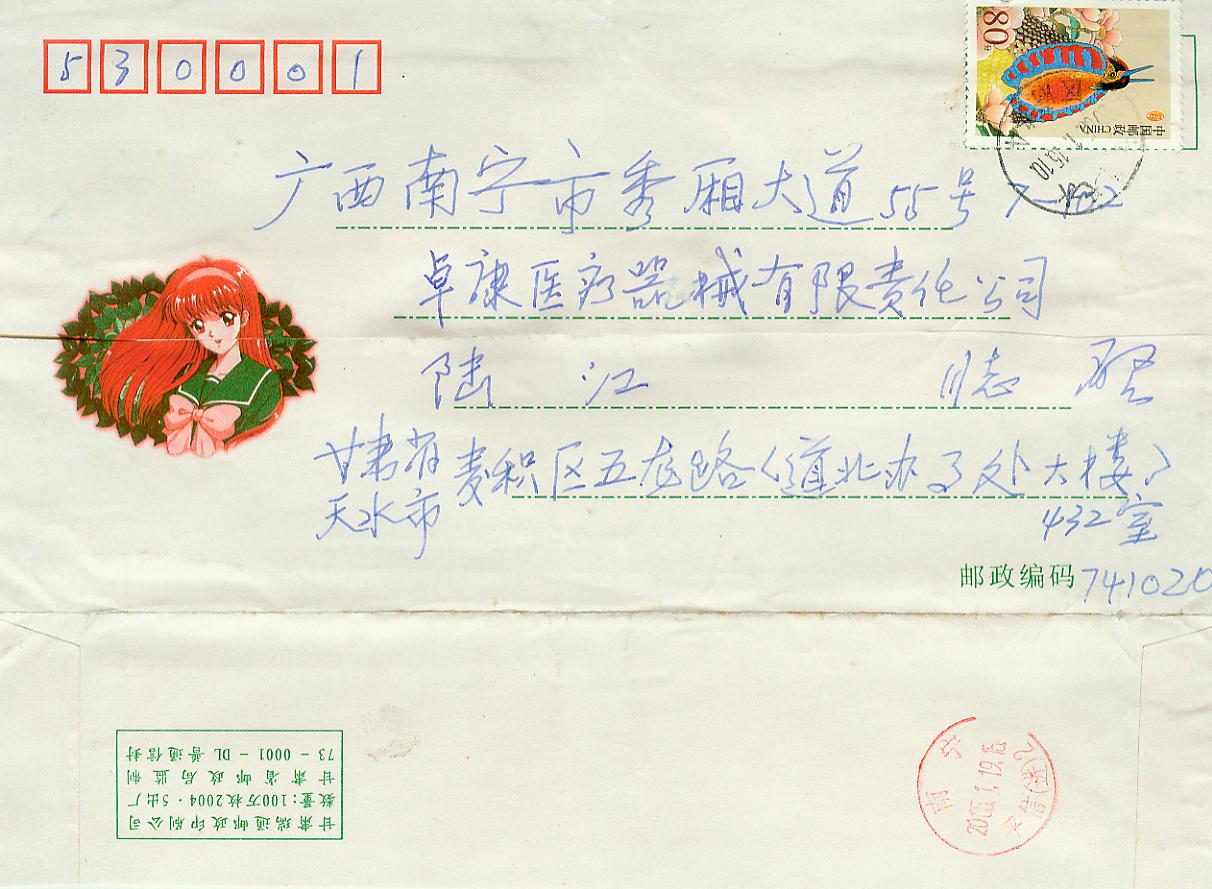 530001
80分
中国邮政 CHINA
广西南宁市秀厢大道55号7-1-02
卓康医疗器械有限责任公司
陆 江 同志 启
甘肃省 麦积区五龙路(道北办事处大楼)
天水市 432室
邮政编码 741020
甘肃瑞通邮政印刷公司
数量:100万枚2004·5出厂
甘肃省邮政局监制
73-0001-DL 普通信封
南宁
2005.1.19.16